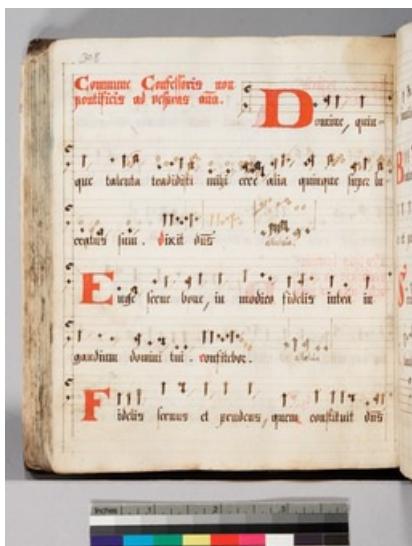 308
Commune Confessoris non
pontificis ad vesperas ana.
Domine, quin-
que talenta tradidisti mihi ecce alia quinque super lu
cratus sum. dixit dns alleluia.
Euge serve bone, in modico fidelis intra in
gaudium domini tui. confitebor. alleluia
Fidelis servus et prudens, quem constituit dns
inches 1 2 3